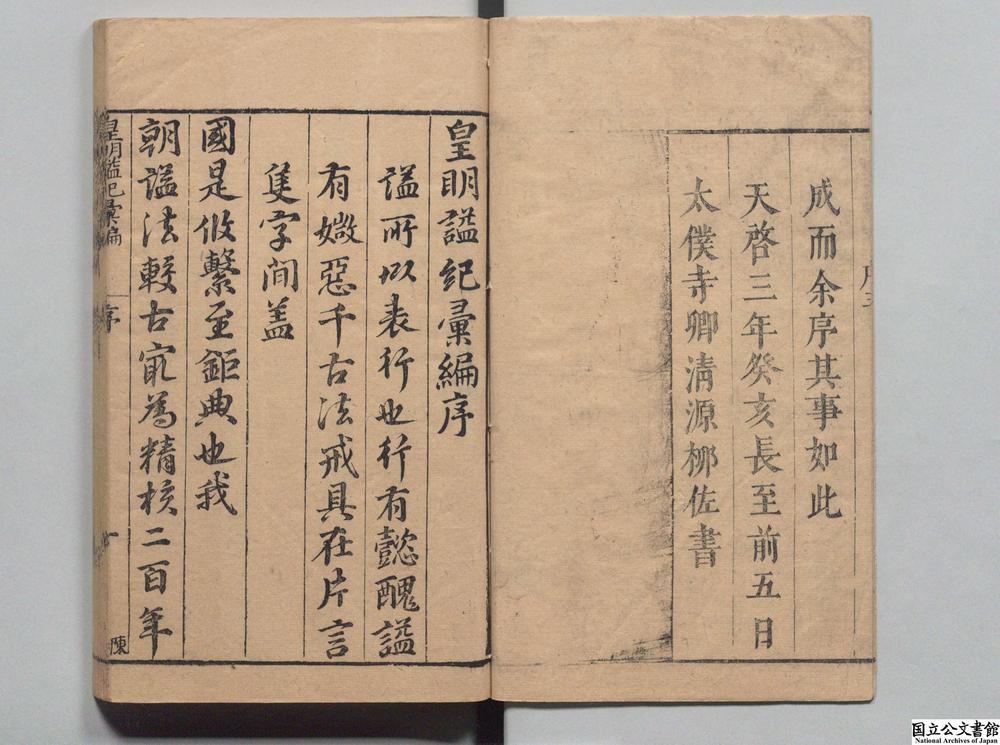 成而余序其事如此
天啓三年癸亥長至前五日
太僕寺卿清源栁佐書
皇明謚紀彙編序
謚所以表行也行有懿醜謚
有媺惡千古法戒具在片言
隻字間盖
國是攸繫至鉅典也我
朝謚法較古寂為精核二百年
皇明謚紀彙編
序
陳
国立公文書館
National Archives of Japan